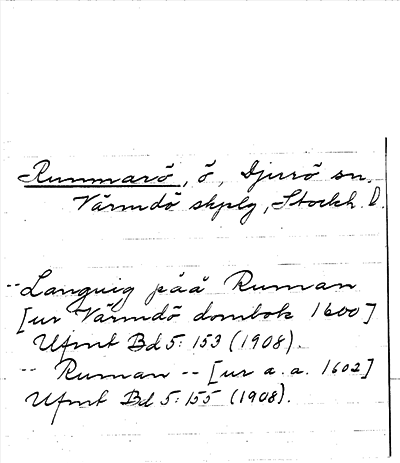 Runmarö, ö, Djurö sn.
Värmdö skplg, Stockh. l.
-- Languig påå Ruman
[ur Värmdö dombok 1600]
Ufmt Bd 5: 153 (1908).
-- Ruman -- [ur a. a. 1602]
Ufmt Bd 5: 155 (1908).